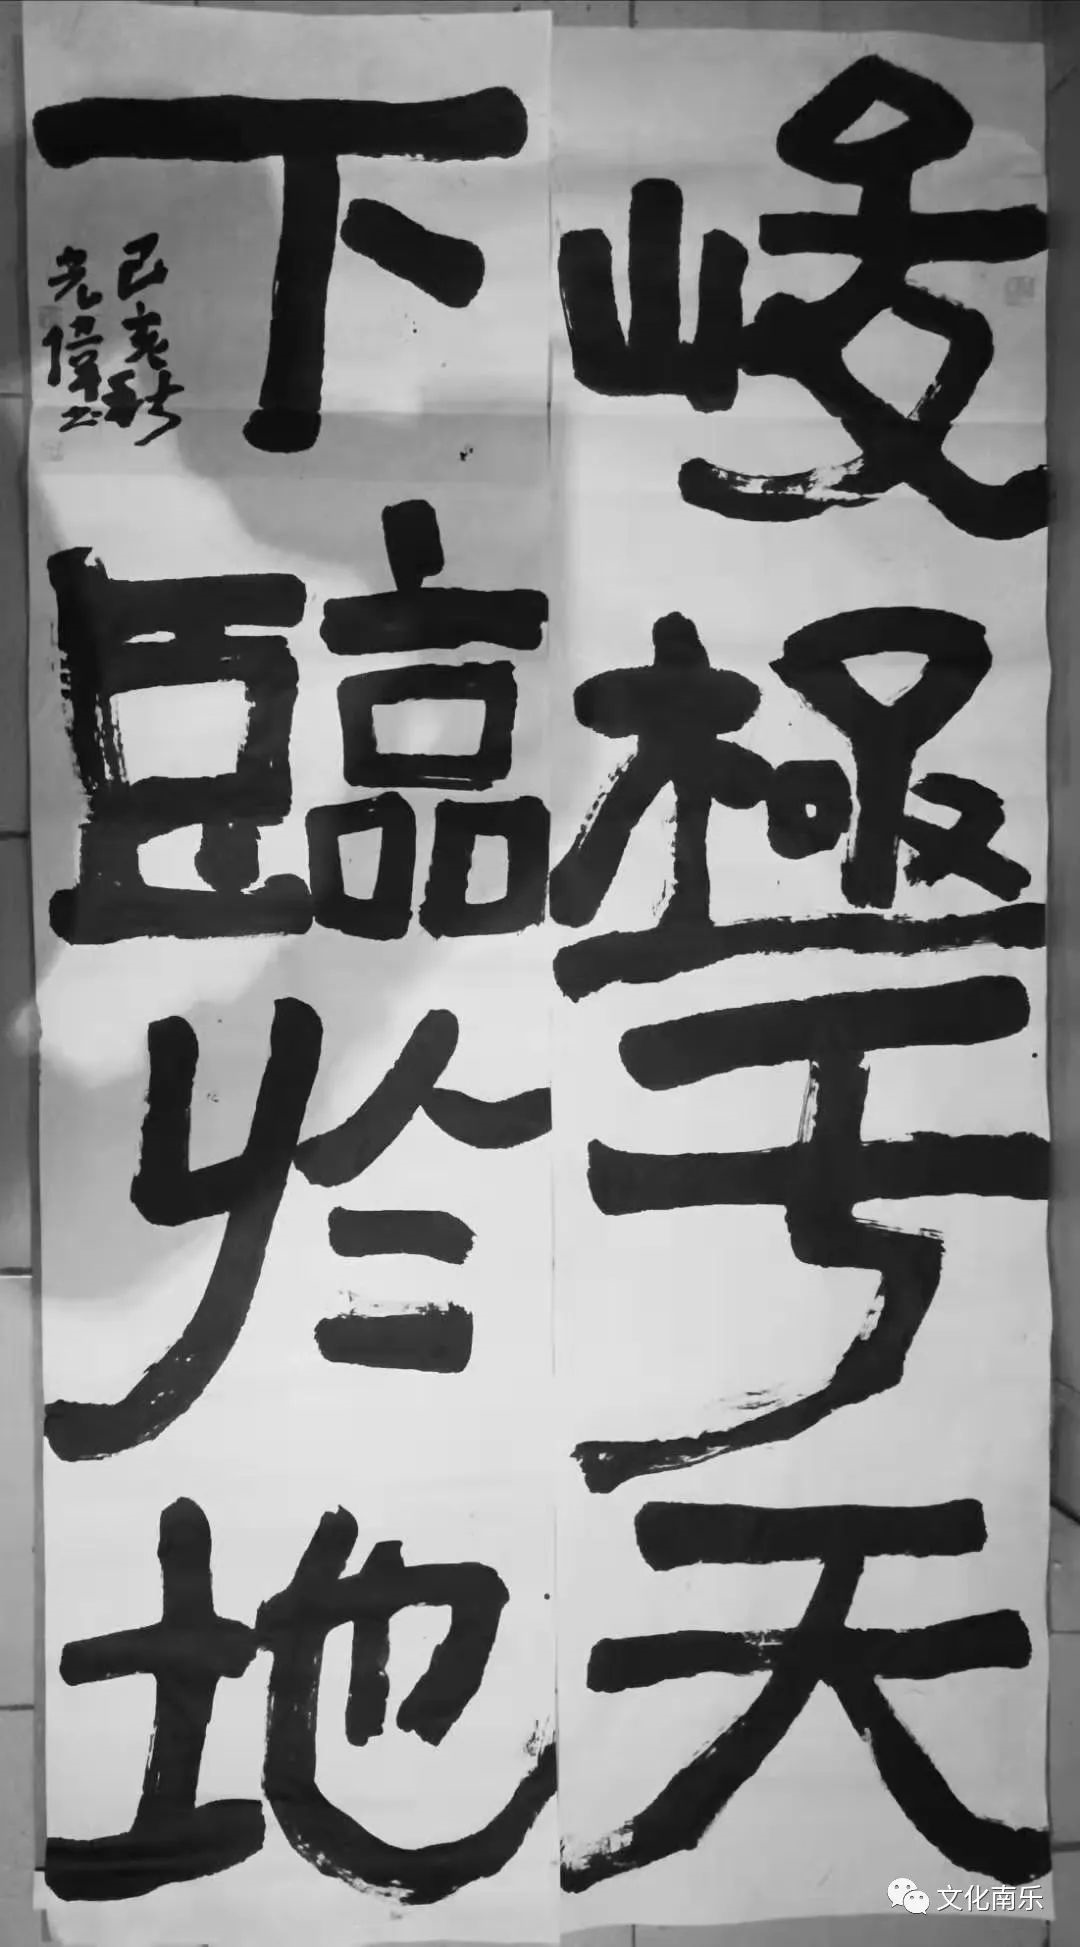 峻極亏天
下臨於地
己亥秋
光偉书
文化南乐